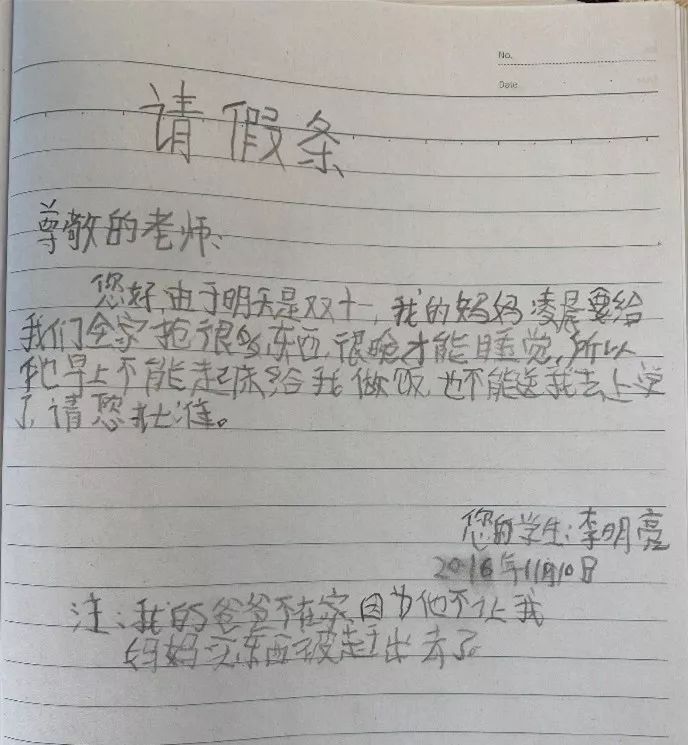 No.
Date
请假条
尊敬的老师:
您好,由于明天是双十一,我的妈妈凌晨要给
我们全家抢很多东西,很晚才能睡觉,所以
他早上不能起床给我做饭,也不能送我去上学
了,请您批准。
您的学生:李明亮
2016年11月10日
注:我的爸爸不在家,因为他不让我
妈妈买东西被赶出去了。